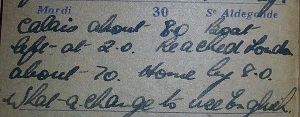 Mardi 30 St Aldegonde
Calais about 8.0 Boat
left at 2.0. Reached London
about 7.0. Home by 8.0.
What a change to use English.